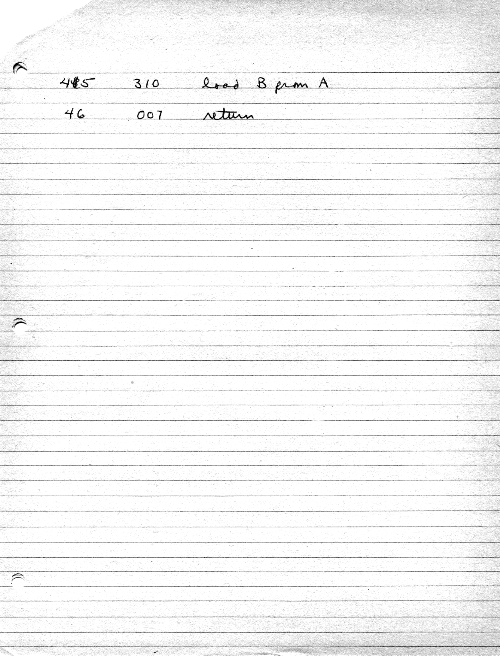 45 310 load B from A
46 007 return